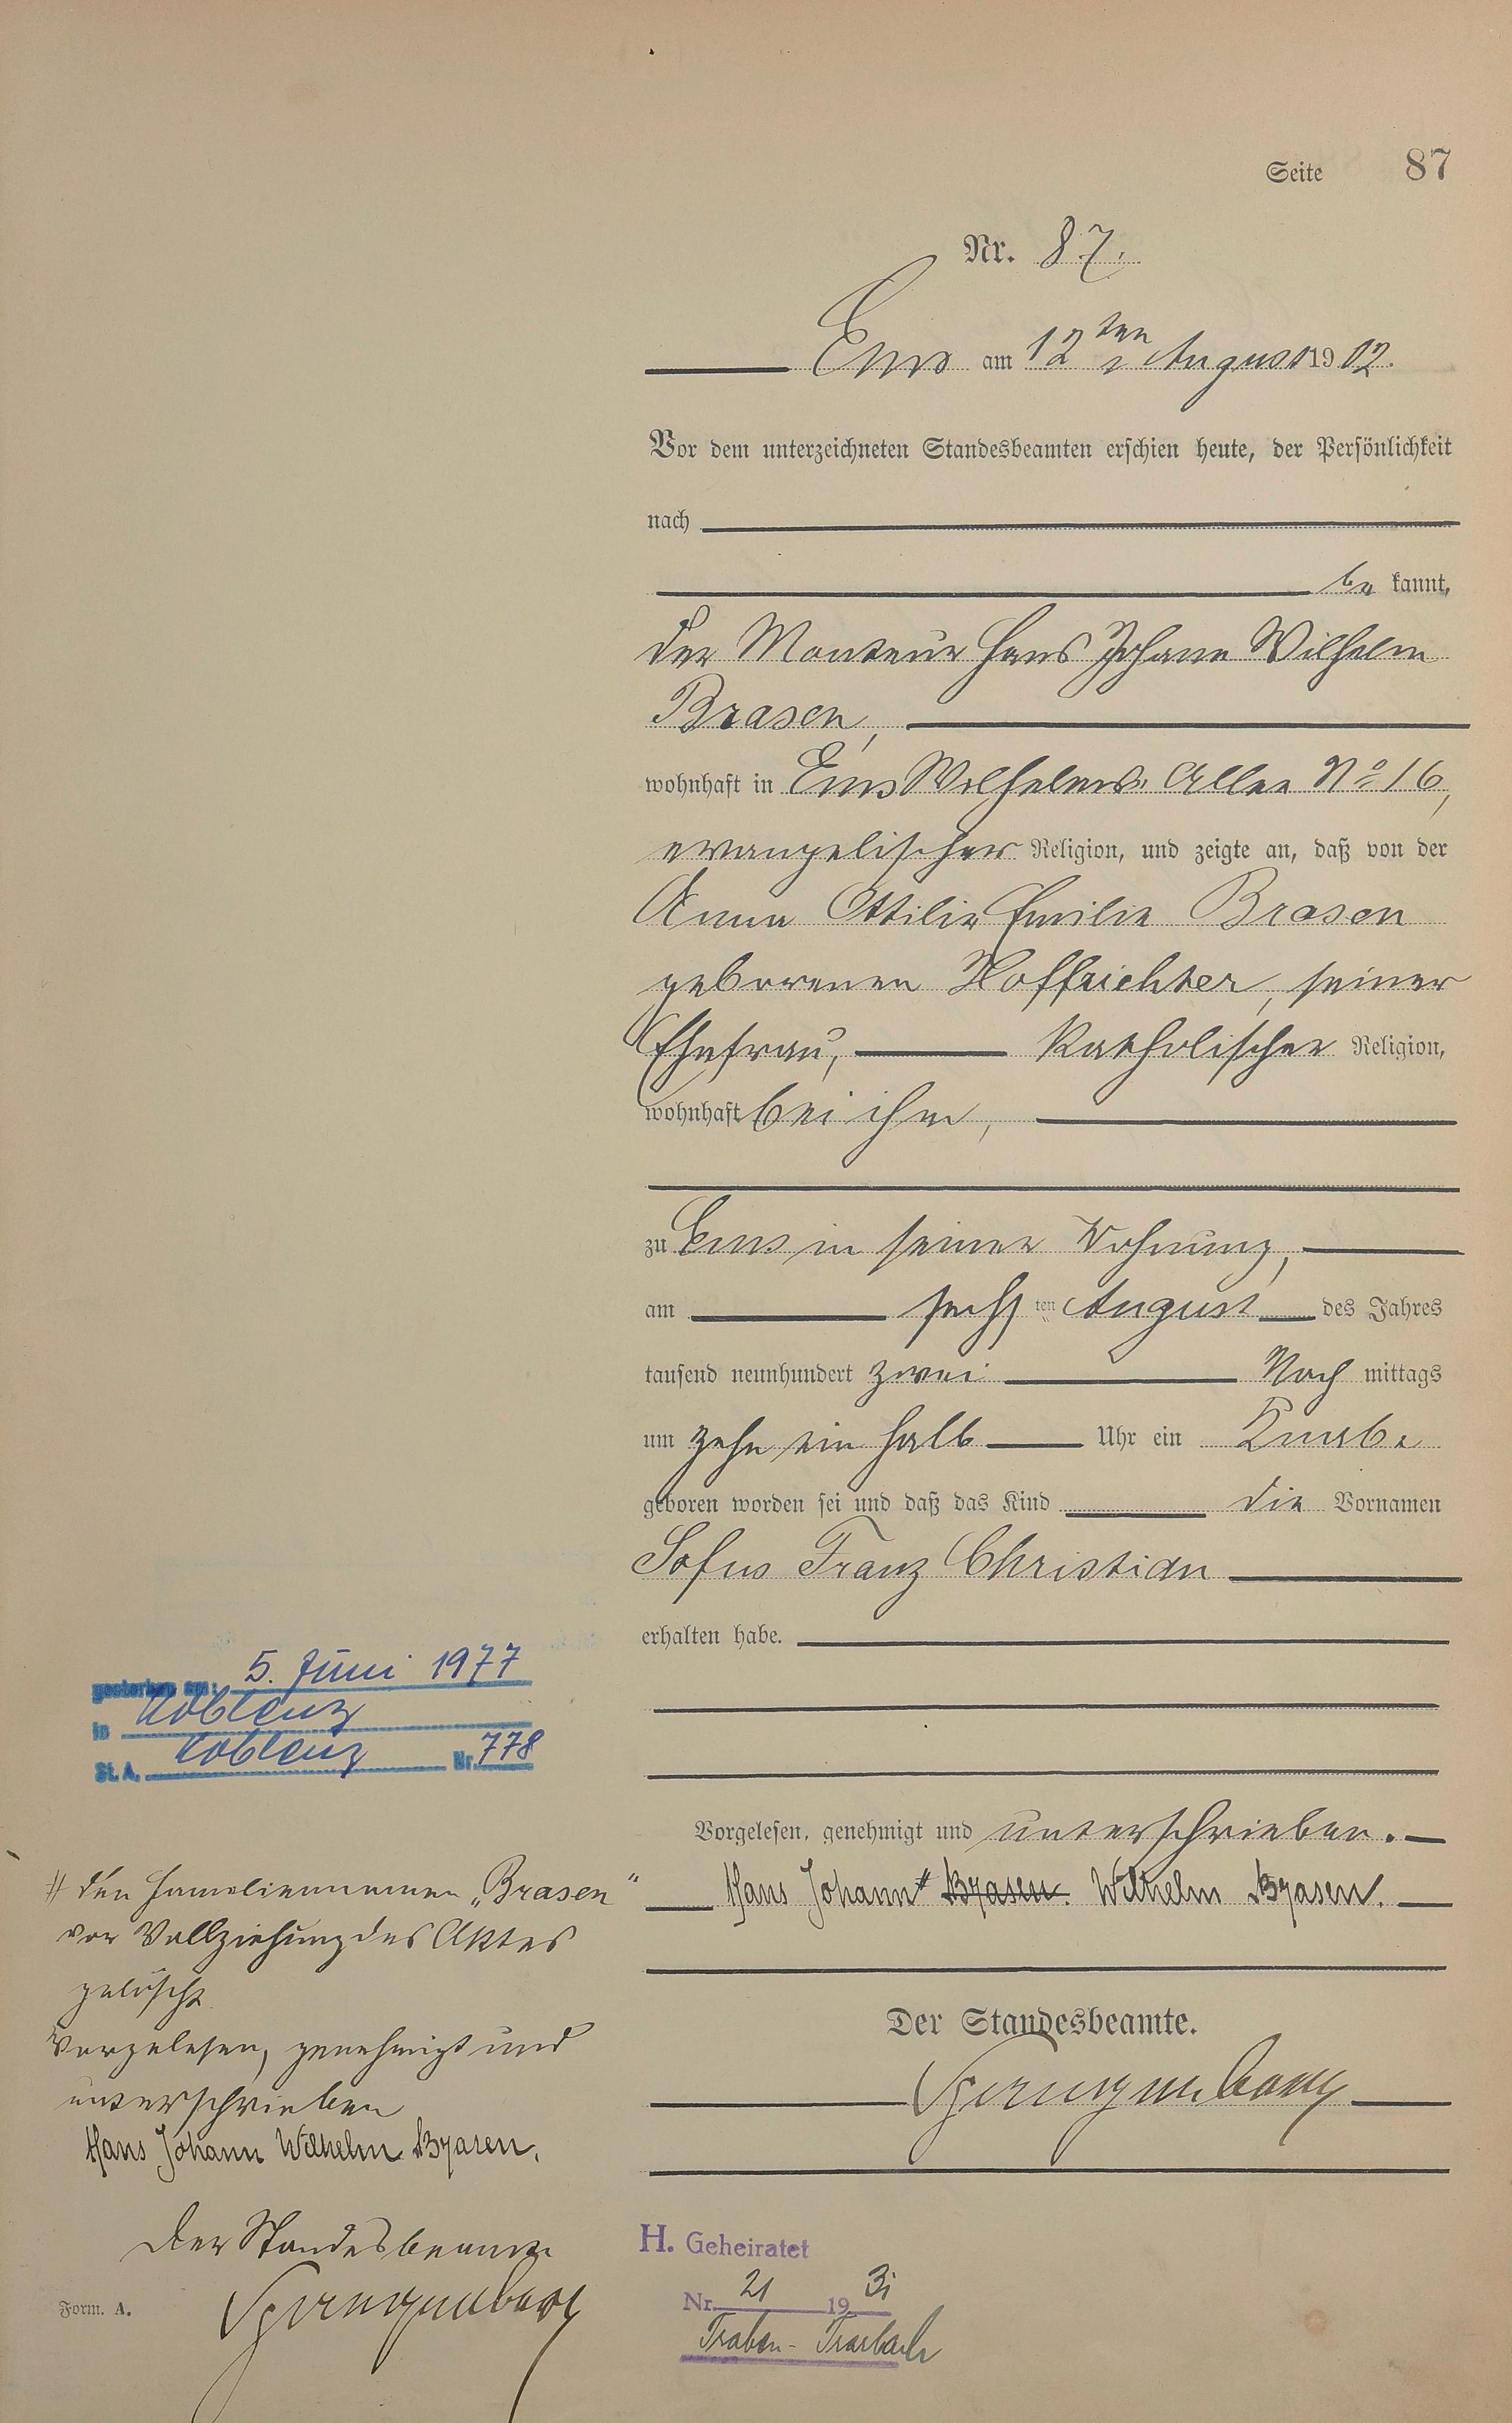 Seite 87
Nr. 87.
Ems am 12ten August 1902.
Vor dem unterzeichneten Standesbeamten erschien heute, der Persönlichkeit
nach
be kannt,
der Monteur Hans Johann Wilhelm
Brasen,
wohnhaft in Ems Wilhelms Allee No 16,
evangelischer Religion, und zeigte an, daß von der
Anna Ottilie Emilie Brasen
geborenen Hoffrichter, seiner
Ehefrau, katholischer Religion,
wohnhaft bei ihm,
zu Ems in seiner Wohnung,
am sechsten August des Jahres
tausend neunhundert zwei Nach mittags
um zehn ein halb Uhr ein Knabe
geboren worden sei und daß das Kind die Vornamen
Sofus Franz Christian
erhalten habe.
gestorben am: 5. Juni 1977
in Koblenz
St. A. Koblenz Nr. 778
Vorgelesen, genehmigt und unterschrieben.
Hans Johann # Brasen. Wilhelm Brasen.
# den Familiennamen „Brasen“
vor Vollziehung des Aktes
gelöscht
Vorgelesen, genehmigt und
unterschrieben
Hans Johann Wilhelm Brasen.
Der Standesbeamte
Der Standesbeamte.
H. Geheiratet
Nr. 21 1931
Traben-Trarbach
Form. A.